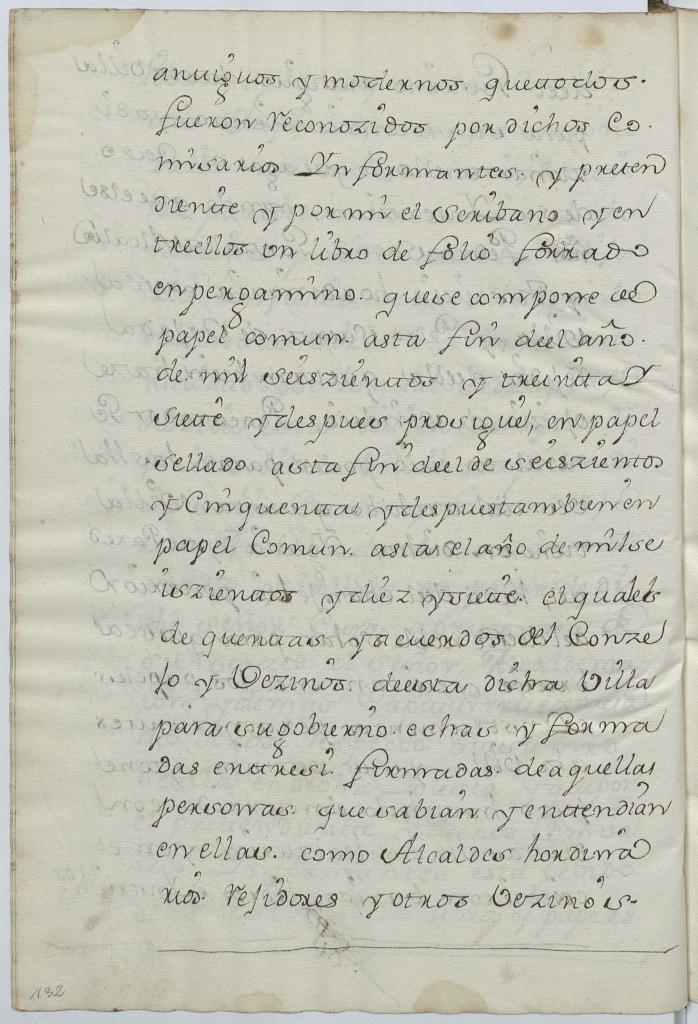 antiguos y modernos. que ttodos.
fueron Reconozidos por dichos Co-
misarios Ynformantes. y preten
diente y por mi el Scribano y en
trellos un libro de folio forrado
en pergamino. que se compone de
papel comun. asta fin deel año.
de. mil seiszienttos y treintta Y
siette y despues prosigue, en papel
sellado asta fin deel de seiszientos
y Cinquentta y despues tambien en
papel Comun. asta el año de mil se
iszienttos y diez y siette. el qual es
de quenttas y acuerdos del Conze
Jo y Vezinos. deesta dicha Villa
para su gobierno echas y forma
das entresi. firmadas. de aquellas
personas. que sabian y enttendian
en ellas. como Alcaldes hordina
rios. Rejidores y otros Vezinos.
132